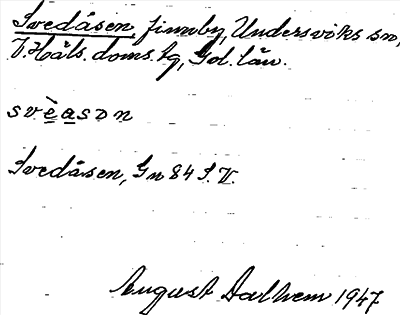 Svedåsen, finnby, Undersviks sn,
V. Häls. doms. tg, Gol. län.
svèasɔn
Svedåsen, Gn 84 S.V.
August Dalhem 1947